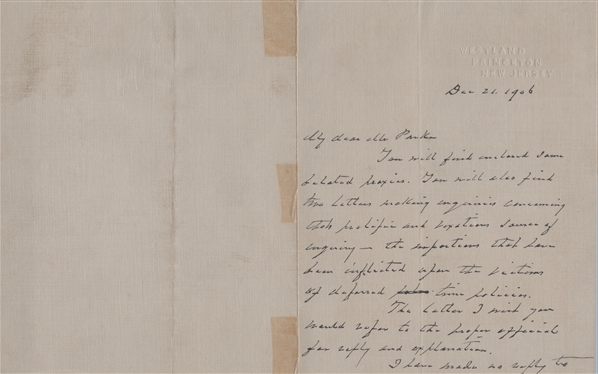 WESTLAND
PRINCETON
NEW JERSEY
Dec 21. 1906
My dear Mr Parker
You will find enclosed some
belated proxies. You will also find
two letters making inquiries concerning
that prolific and vexatious source of
inquiry — the impositions that have
been inflicted upon the victims
of deferred time policies.
The letter I wish you
would refer to the proper official
for reply and explanation.
I have made no reply to